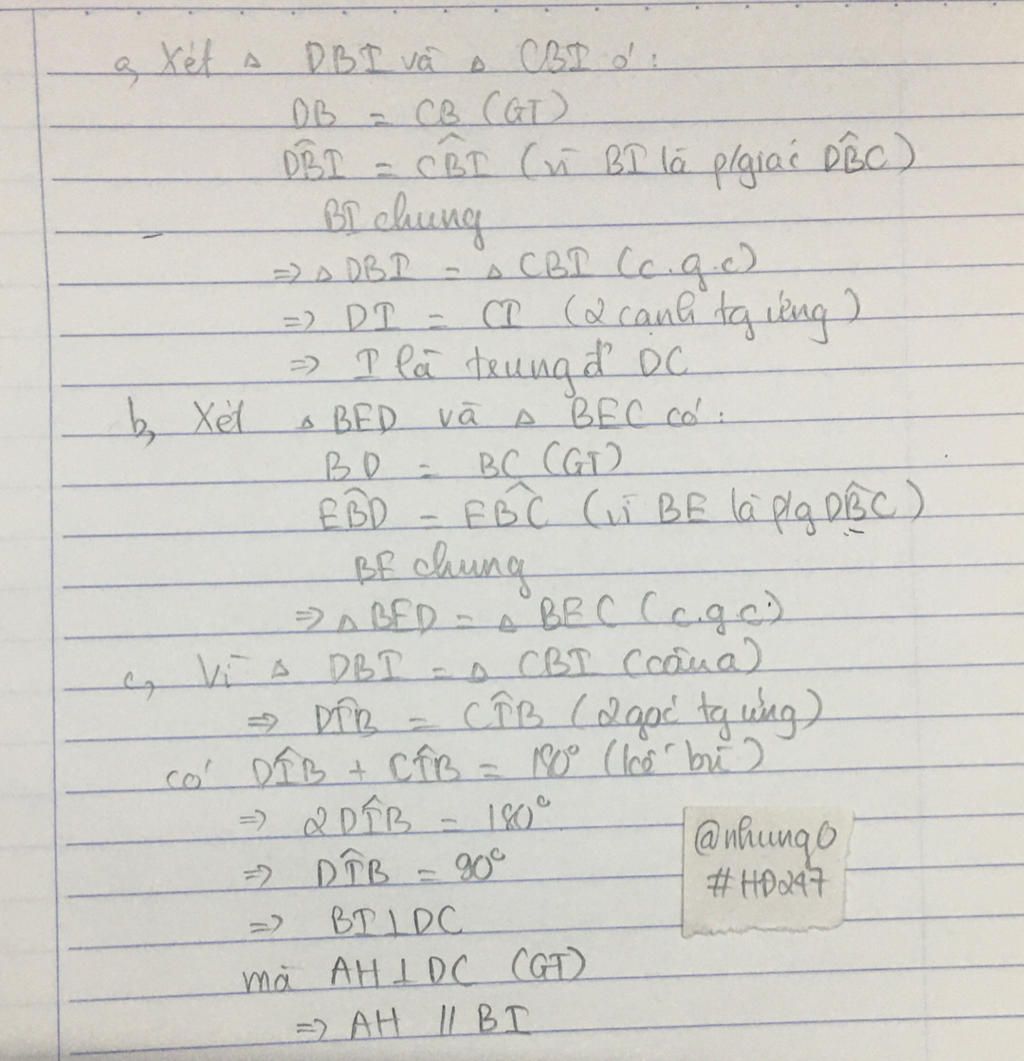 a, Xét △ DBI và △ CBI ó:
DB = CB (GT)
DB̂I = CB̂I (vì BI là p/giác DB̂C)
BI chung
=> △ DBI = △ CBI (c.g.c)
=> DI = CI (2 cạnh tg ứng)
=> I là trung đ' DC
b, Xét △ BED và △ BEC có:
BD = BC (GT)
EB̂D = EB̂C (vì BE là p/g DB̂C)
BE chung
=> △ BED = △ BEC (c.g.c)
c, Vì △ DBI = △ CBI (câu a)
=> DÎB = CÎB (2 góc tg ứng)
có DÎB + CÎB = 180° (kề bù)
=> 2DÎB = 180°
=> DÎB = 90°
=> BI ⊥ DC
mà AH ⊥ DC (GT)
=> AH // BI
@nhung0
#HD247